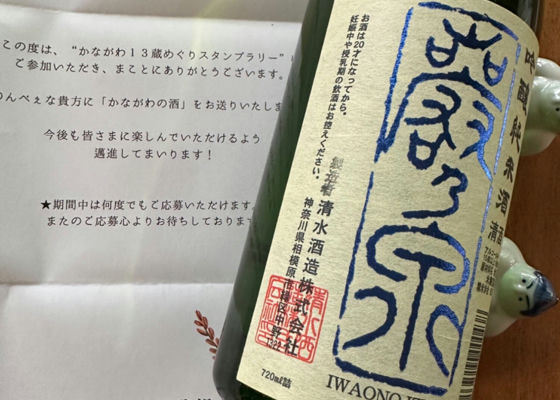 この度は、“かながわ13蔵めぐりスタンプラリー”に
ご参加いただき、まことにありがとうございます。
んべぇな貴方に「かながわの酒」をお送りいたしま
今後も皆さまに楽しんでいただけるよう
邁進してまいります！
★期間中は何度でもご応募いただけます。
またのご応募心よりお待ちしております
お酒は20才になってから。
妊娠中や授乳期の飲酒はお控えください。
巌乃泉
吟醸純米酒
清酒
製造者 清水酒造株式会社
神奈川県相模原市緑区中野
720ml詰
IWAONO